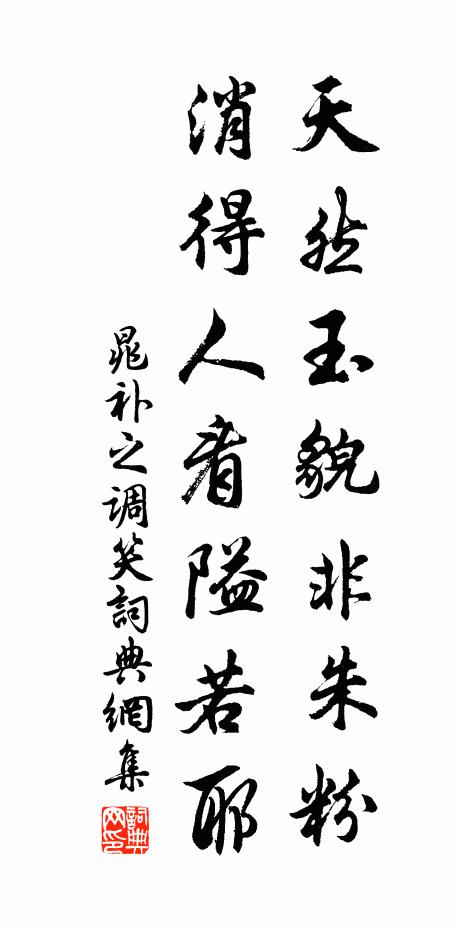 天然玉貌非朱粉
消得人看隘若耶
晁补之调笑詞典網集
詞典网印